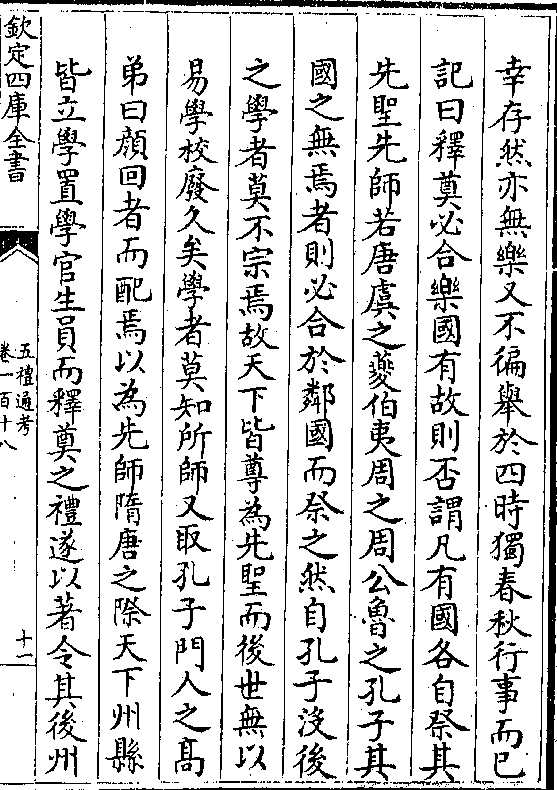 幸存然亦無樂又不徧舉於四時獨春秋行事而已
記曰釋奠必合樂國有故則否謂凡有國各自祭其
先聖先師若唐虞之夔伯夷周之周公魯之孔子其
國之無焉者則必合於鄰國而祭之然自孔子沒後
之學者莫不宗焉故天下皆尊為先聖而後世無以
易學校廢久矣學者莫知所師又取孔子門人之高
弟曰顔回者而配焉以為先師隋唐之際天下州縣
皆立學置學官生員而釋奠之禮遂以著令其後州
欽定四庫全書
五禮通考
卷一百十八
十一